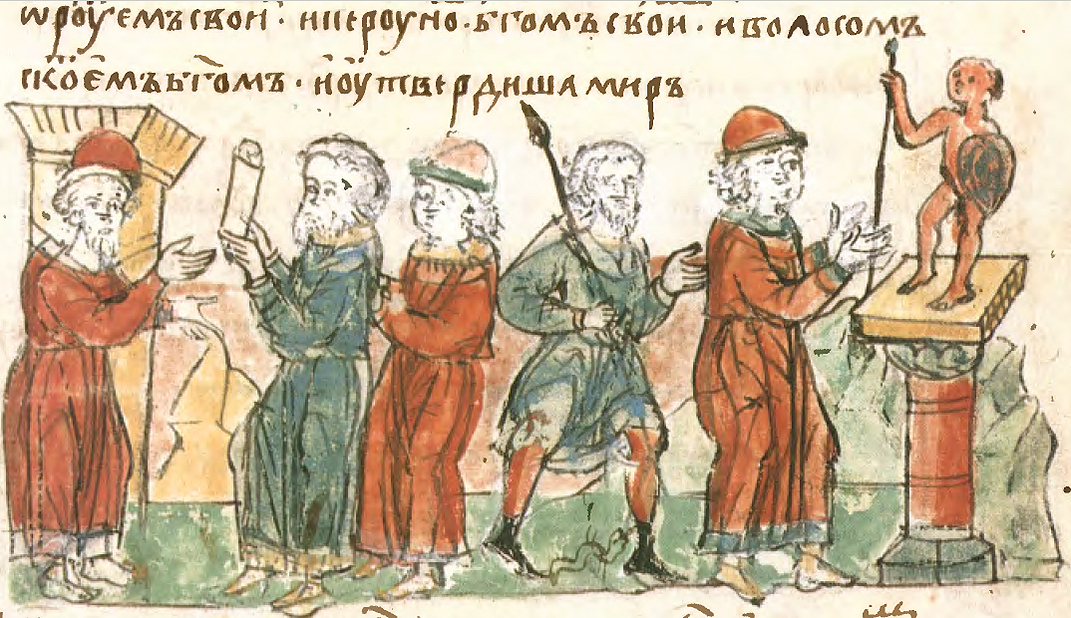 ѡроуемъ свои · и пероуно · бг҃омъ свои · и волосомъ
скоⷮемъ бг҃омъ · и оутвердиша миръ